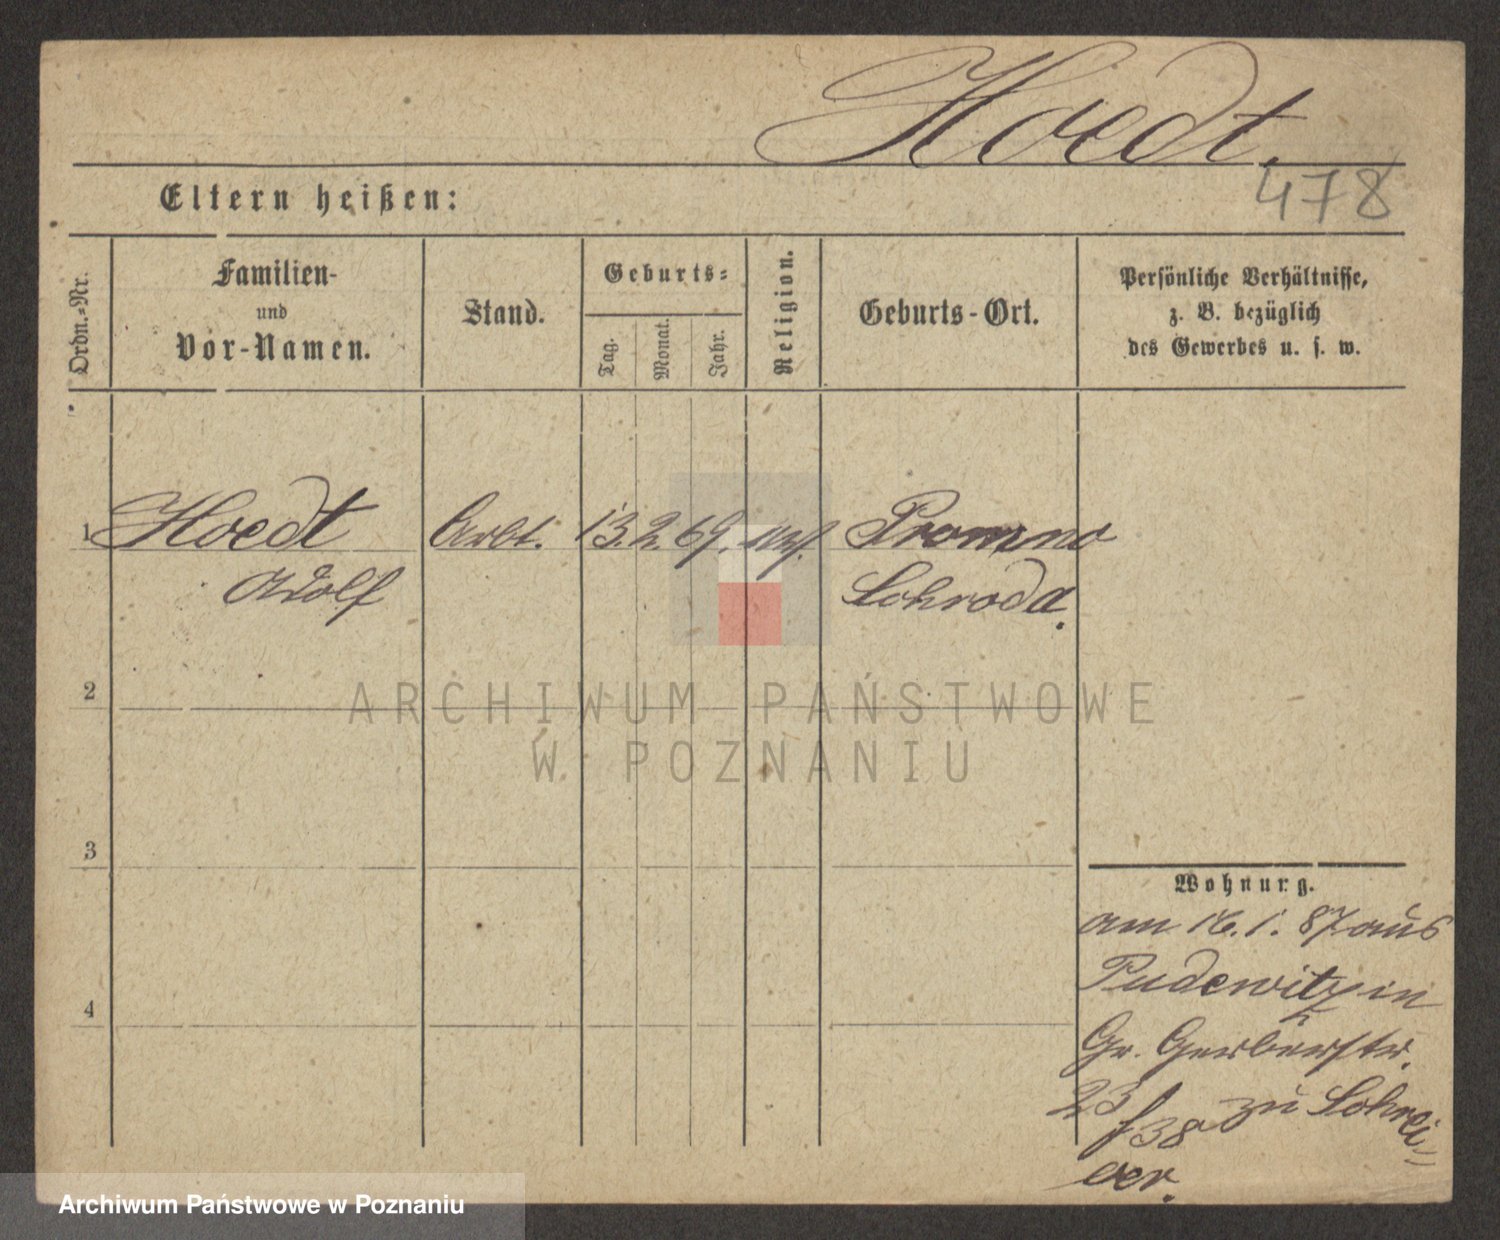 Hoedt.
478
Eltern heißen:
Ordn.-Nr.
Familien-
und
Vor-Namen.
Stand.
Geburts-
Tag.
Monat.
Jahr.
Religion.
Geburts-Ort.
Persönliche Verhältnisse,
z. B. bezüglich
des Gewerbes u. s. w.
1 Hoedt Arbt. 13. 2. 69. Promno
Adolf Schroda.
2
ARCHIWUM PAŃSTWOWE
W POZNANIU
3
Wohnung.
am 16. 1. 87 aus
Pudewitz in
4
Gr. Gerberstr.
23 f 38 zu Schrei=
Archiwum Państwowe w Poznaniu